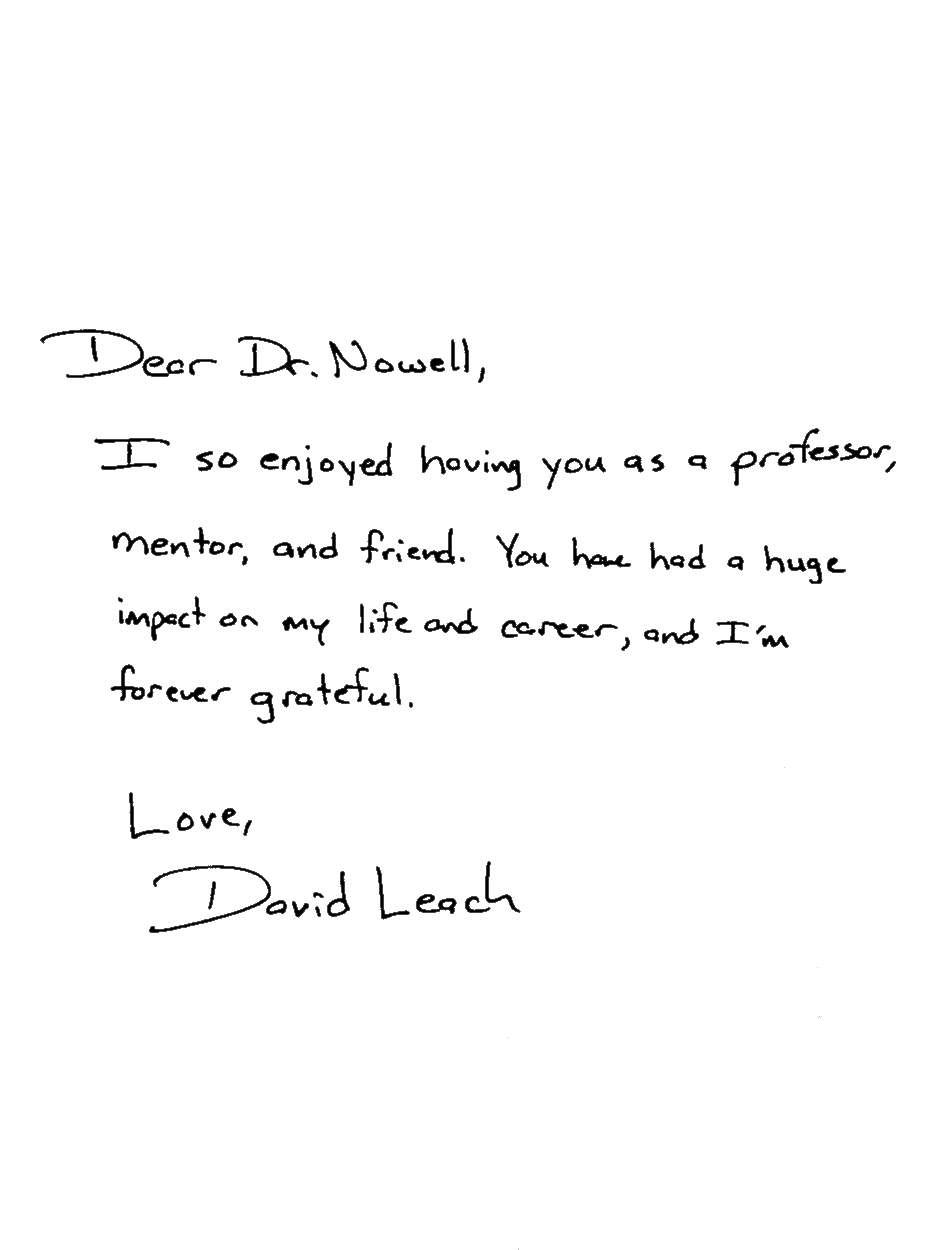 Dear Dr. Nowell,
I so enjoyed having you as a professor,
mentor, and friend. You have had a huge
impact on my life and career, and I'm
forever grateful.
Love,
David Leach